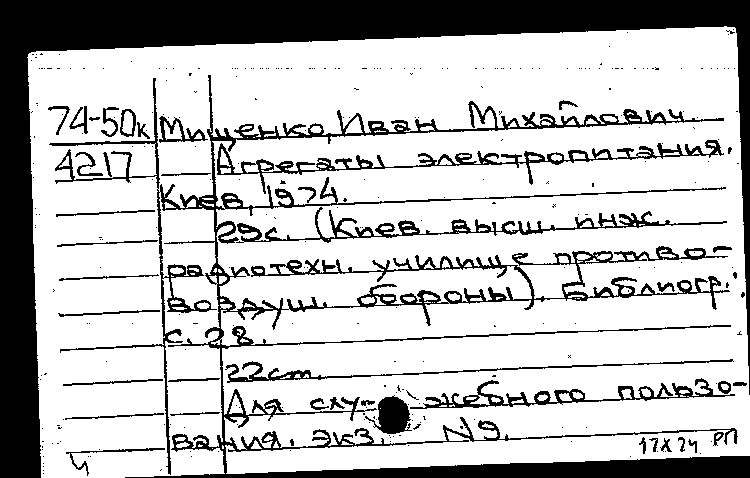 74-50к Мищенко, Иван Михайлович.
4217 Агрегаты электропитания.
Киев, 1974.
29с. (Киев. высш. инж.
радиотехн. училище противо-
воздуш. обороны). Библиогр.:
с. 28.
22cm.
Для служебного пользо-
вания. экз. N9.
17X74 РП
ч